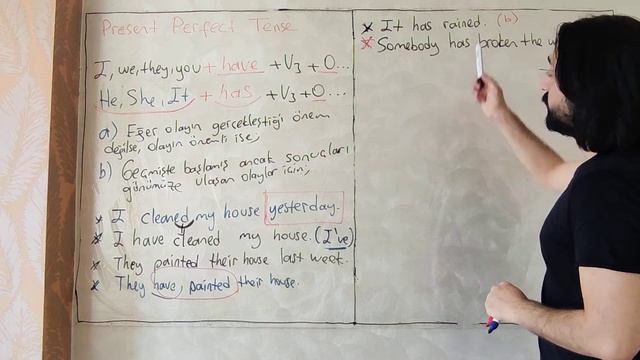 Present Perfect Tense
I, we, they, you + have + V3 + O...
He, She, It + has + V3 + O...
a) Eğer olayın gerçekleştiği önem
değilse, olayın önemli ise;
b) Geçmişte başlamış ancak sonuçları
günümüze ulaşan olaylar için;
* I cleaned my house yesterday.
* I have cleaned my house. (I've)
* They painted their house last week.
* They have painted their house.
* It has rained. (b)
* Somebody has broken the